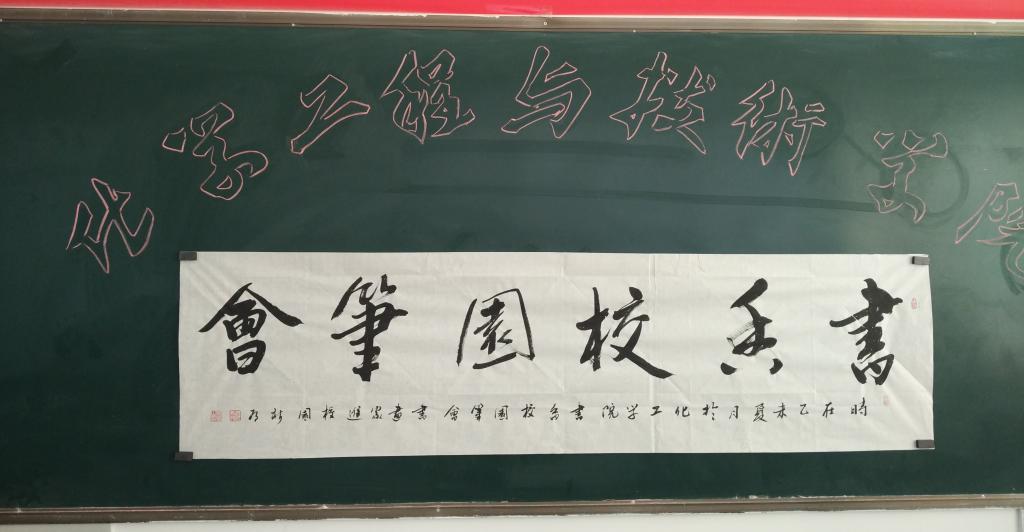 化学工程与技術学院
書香校園筆會
時在乙未夏月於化工学院書香校園筆會書畫家進校園